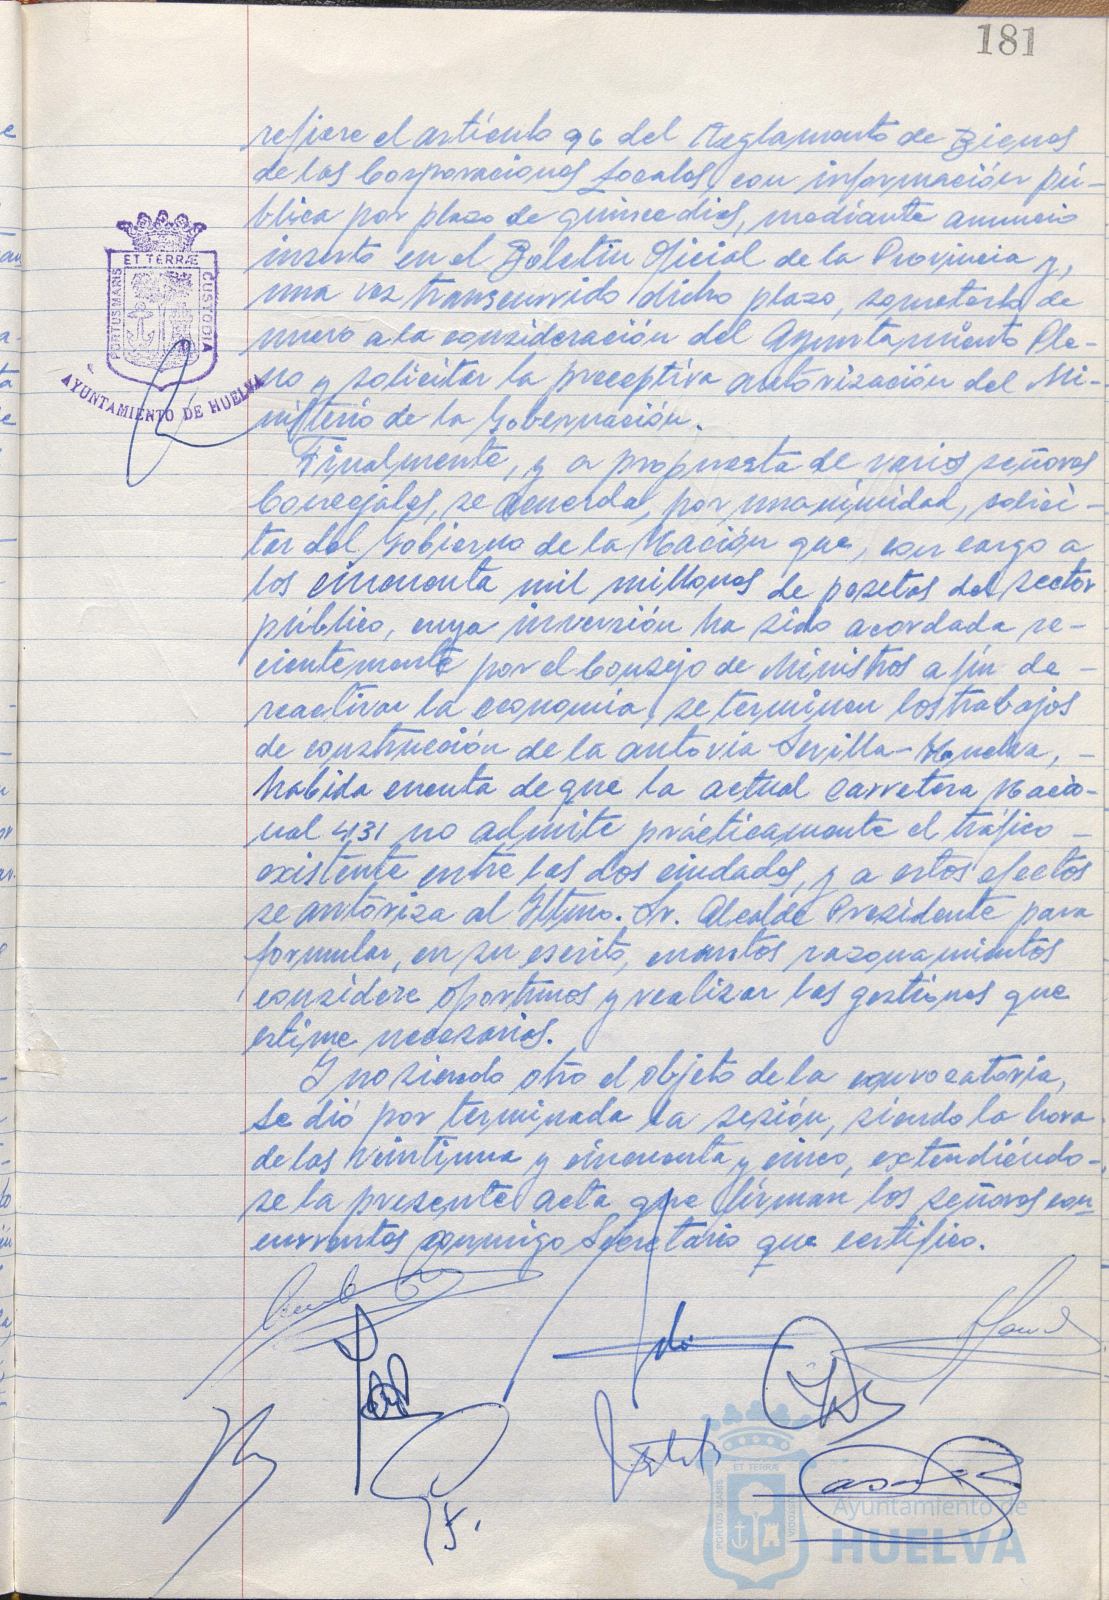 181
refiere el artículo 96 del Reglamento de Bienes
de las Corporaciones Locales, con información pú-
blica por plazo de quince dias, mediante anuncio
inserto en el Boletín Oficial de la Provincia y,
una vez transcurrido dicho plazo, someterlo de
nuevo a la consideración del Ayuntamiento Ple-
no y solicitar la preceptiva autorización del Mi-
nisterio de la Gobernación.
ET TERRÆ
PORTUS MARIS
CUSTODIA
AYUNTAMIENTO DE HUELVA
Finalmente, y a propuesta de varios señores
Concejales, se acuerda, por unanimidad, solici-
tar del Gobierno de la Nación que, con cargo a
los cincuenta mil millones de pesetas del sector
público, cuya inversión ha sido acordada re-
cientemente por el Consejo de Ministros a fin de-
reactivar la economía, se terminen los trabajos
de construcción de la autovía Sevilla-Huelva, -
habida cuenta de que la actual Carretera Nacio-
nal 431 no admite prácticamente el tráfico -
existente entre las dos ciudades, y a estos efectos
se autoriza al Iltmo. Sr. Alcalde Presidente para
formular, en su escrito, cuantos razonamientos
considere oportunos y realizar las gestiones que
estime necesarias.
Y no siendo otro el objeto de la convocatoria,
se dió por terminada la sesión, siendo la hora
de las veintiuna y cincuenta y cinco, extendiéndo-
se la presente acta que firman los señores con-
currentes conmigo Secretario que certifico.
ET TERRÆ
PORTUS MARIS
CUSTODIA
Ayuntamiento de
HUELVA